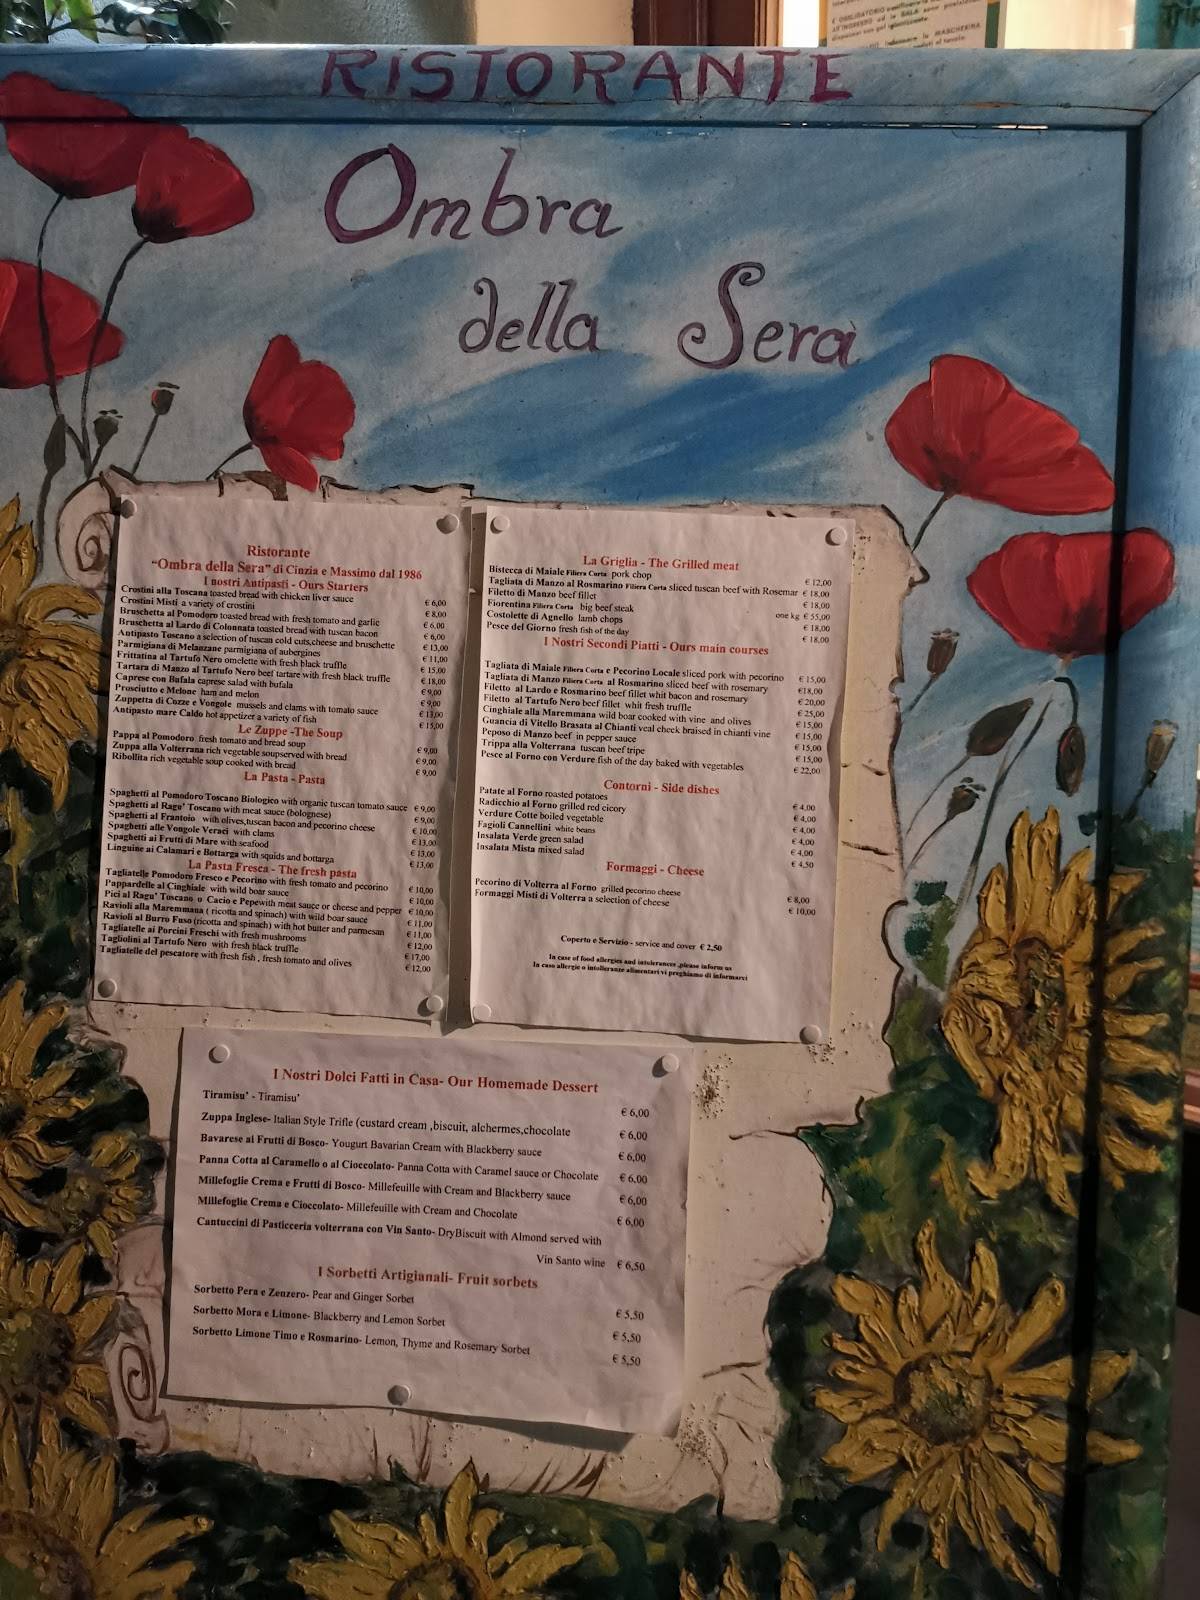 È OBBLIGATORIO
RISTORANTE
Ombra
della Sera
Ristorante
"Ombra della Sera" di Cinzia e Massimo dal 1986
I nostri Antipasti - Ours Starters
Crostini alla Toscana toasted bread with chicken liver sauce € 6,00
Crostini Misti a variety of crostini € 8,00
Bruschetta al Pomodoro toasted bread with fresh tomato and garlic € 6,00
Bruschetta al Lardo di Colonnata toasted bread with tuscan bacon € 6,00
Antipasto Toscano a selection of tuscan cold cuts,cheese and bruschette € 13,00
Parmigiana di Melanzane parmigiana of aubergines € 11,00
Frittatina al Tartufo Nero omelette with fresh black truffle € 15,00
Tartara di Manzo al Tartufo Nero beef tartare with fresh black truffle € 18,00
Caprese con Bufala caprese salad with bufala € 9,00
Prosciutto e Melone ham and melon € 9,00
Zuppetta di Cozze e Vongole mussels and clams with tomato sauce € 13,00
Antipasto mare Caldo hot appetizer a variety of fish € 15,00
Le Zuppe -The Soup
Pappa al Pomodoro fresh tomato and bread soup € 9,00
Zuppa alla Volterrana rich vegetable soupserved with bread € 9,00
Ribollita rich vegetable soup cooked with bread € 9,00
La Pasta - Pasta
Spaghetti al Pomodoro Toscano Biologico with organic tuscan tomato sauce € 9,00
Spaghetti al Ragu' Toscano with meat sauce (bolognese) € 9,00
Spaghetti al Frantoio with olives,tuscan bacon and pecorino cheese € 10,00
Spaghetti alle Vongole Veraci with clams € 13,00
Spaghetti ai Frutti di Mare with seafood € 13,00
Linguine ai Calamari e Bottarga with squids and bottarga € 13,00
La Pasta Fresca - The fresh pasta
Tagliatelle Pomodoro Fresco e Pecorino with fresh tomato and pecorino € 10,00
Pappardelle al Cinghiale with wild boar sauce € 10,00
Pici al Ragu' Toscano o Cacio e Pepewith meat sauce or cheese and pepper € 10,00
Ravioli alla Maremmana ( ricotta and spinach) with wild boar sauce € 11,00
Ravioli al Burro Fuso (ricotta and spinach) with hot butter and parmesan € 11,00
Tagliatelle ai Porcini Freschi with fresh mushrooms € 12,00
Tagliolini al Tartufo Nero with fresh black truffle € 17,00
Tagliatelle del pescatore with fresh fish , fresh tomato and olives € 12,00
La Griglia - The Grilled meat
Bistecca di Maiale Filiera Corta pork chop € 12,00
Tagliata di Manzo al Rosmarino Filiera Corta sliced tuscan beef with Rosemar € 18,00
Filetto di Manzo beef fillet € 18,00
Fiorentina Filiera Corta big beef steak one kg € 55,00
Costolette di Agnello lamb chops € 18,00
Pesce del Giorno fresh fish of the day € 18,00
I Nostri Secondi Piatti - Ours main courses
Tagliata di Maiale Filiera Corta e Pecorino Locale sliced pork with pecorino € 15,00
Tagliata di Manzo Filiera Corta al Rosmarino sliced beef with rosemary €18,00
Filetto al Lardo e Rosmarino beef fillet whit bacon and rosemary € 20,00
Filetto al Tartufo Nero beef fillet whit fresh truffle € 25,00
Cinghiale alla Maremmana wild boar cooked with vine and olives € 15,00
Guancia di Vitello Brasata al Chianti veal cheek braised in chianti vine € 15,00
Peposo di Manzo beef in pepper sauce € 15,00
Trippa alla Volterrana tuscan beef tripe € 15,00
Pesce al Forno con Verdure fish of the day baked with vegetables € 22,00
Contorni - Side dishes
Patate al Forno roasted potatoes € 4,00
Radicchio al Forno grilled red cicory € 4,00
Verdure Cotte boiled vegetable € 4,00
Fagioli Cannellini white beans € 4,00
Insalata Verde green salad € 4,00
Insalata Mista mixed salad € 4,50
Formaggi - Cheese
Pecorino di Volterra al Forno grilled pecorino cheese € 8,00
Formaggi Misti di Volterra a selection of cheese € 10,00
Coperto e Servizio - service and cover € 2,50
In case of food allergies and intolerances ,please inform us
In caso allergie o intolleranze alimentari vi preghiamo di informarci
I Nostri Dolci Fatti in Casa- Our Homemade Dessert
Tiramisu' - Tiramisu' € 6,00
Zuppa Inglese- Italian Style Trifle (custard cream ,biscuit, alchermes,chocolate € 6,00
Bavarese ai Frutti di Bosco- Yougurt Bavarian Cream with Blackberry sauce € 6,00
Panna Cotta al Caramello o al Cioccolato- Panna Cotta with Caramel sauce or Chocolate € 6,00
Millefoglie Crema e Frutti di Bosco- Millefeuille with Cream and Blackberry sauce € 6,00
Millefoglie Crema e Cioccolato- Millefeuille with Cream and Chocolate € 6,00
Cantuccini di Pasticceria volterrana con Vin Santo- DryBiscuit with Almond served with
Vin Santo wine € 6,50
I Sorbetti Artigianali- Fruit sorbets
Sorbetto Pera e Zenzero- Pear and Ginger Sorbet € 5,50
Sorbetto Mora e Limone- Blackberry and Lemon Sorbet € 5,50
Sorbetto Limone Timo e Rosmarino- Lemon, Thyme and Rosemary Sorbet € 5,50